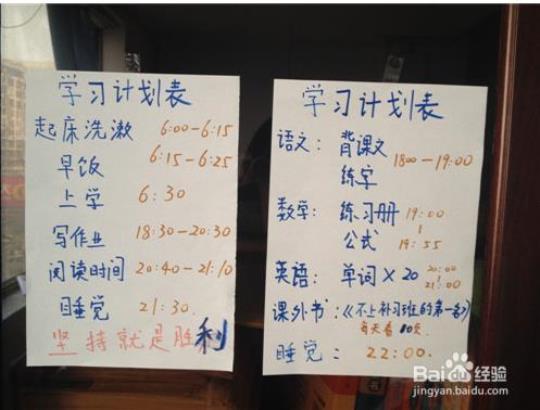 学习计划表
起床洗漱 6:00-6:15
早饭 6:15-6:25
上学 6:30
写作业 18:30-20:30
阅读时间 20:40-21:10
睡觉 21:30
坚持就是胜利
学习计划表
语文：背课文
练字
1800-19:00
数学：练习册 19:00
公式 19:55
英语：单词×20 20:00
21:00
课外书：《不上补习班的第一名》
每天看10页
睡觉：22:00.
Baidu经验
jingyan.baidu.com